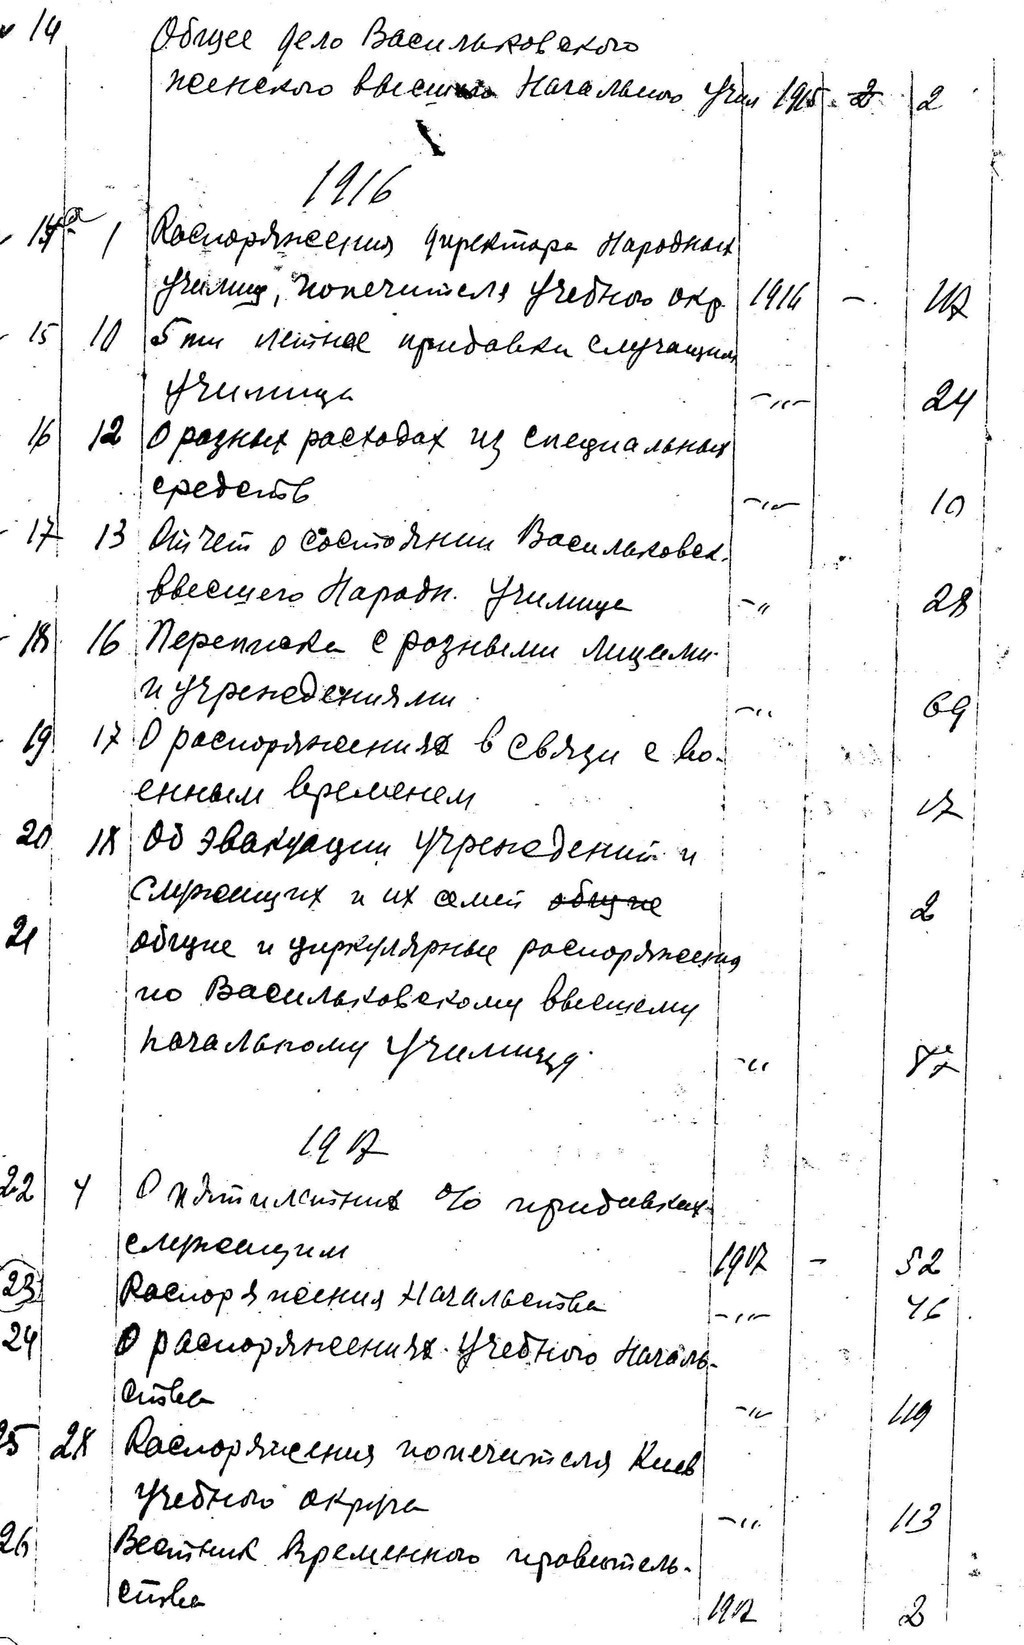 14 Общее дело Васильковского
женского высшего Начального Учил 1915 - 2 2
1916
14а 1 Распоряжения директора Народных
Училищ, попечителя Учебного окр. 1916 - 117
15 10 5ти летное придавки служащим
Училища -"- 24
16 12 О разных расходах из специальных
средств -"- 10
17 13 Отчет о состоянии Васильковск.
ввысшего Народн. Училища -" 28
18 16 Переписка с разными лицами
и учреждениями -" 69
19 17 О распоряжениях в связи с во-
енным временем 17
20 18 Об эвакуации учреждений и
служащих и их семей общие 2
21 общие и циркулярные распоряжения
по Васильковскому ввысшему
начальному Училищу -" 87
1917
22 4 О пятилетних % придавках
служащим 1917 - 52
23 Распоряжения Начальства -"- 46
24 О распоряжениях Учебного Началь-
ства -" 119
25 28 Распоряжения попечителя Киев
Учебного округа -" 113
26 Вестник Временного правитель-
ства 1917 2